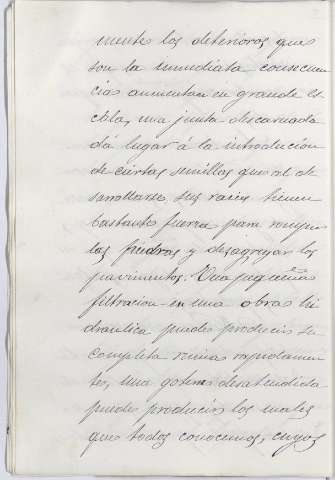 mente los deterioros que
son la inmediata consecuen
cias aumentan en grande es
cala, una junta descarnada
dá lugar á la introducion
de ciertas semillas que al de
sarrollarse sus raices tienen
bastante fuerza para romper
las piedras y desagregar los
pavimentos. Una pequeña
filtracion en una obras hi
draulica puede producir su
completa ruina rapidamen
te, una gotera desatendida
puede producir los males
que todos conocemos, cuyos